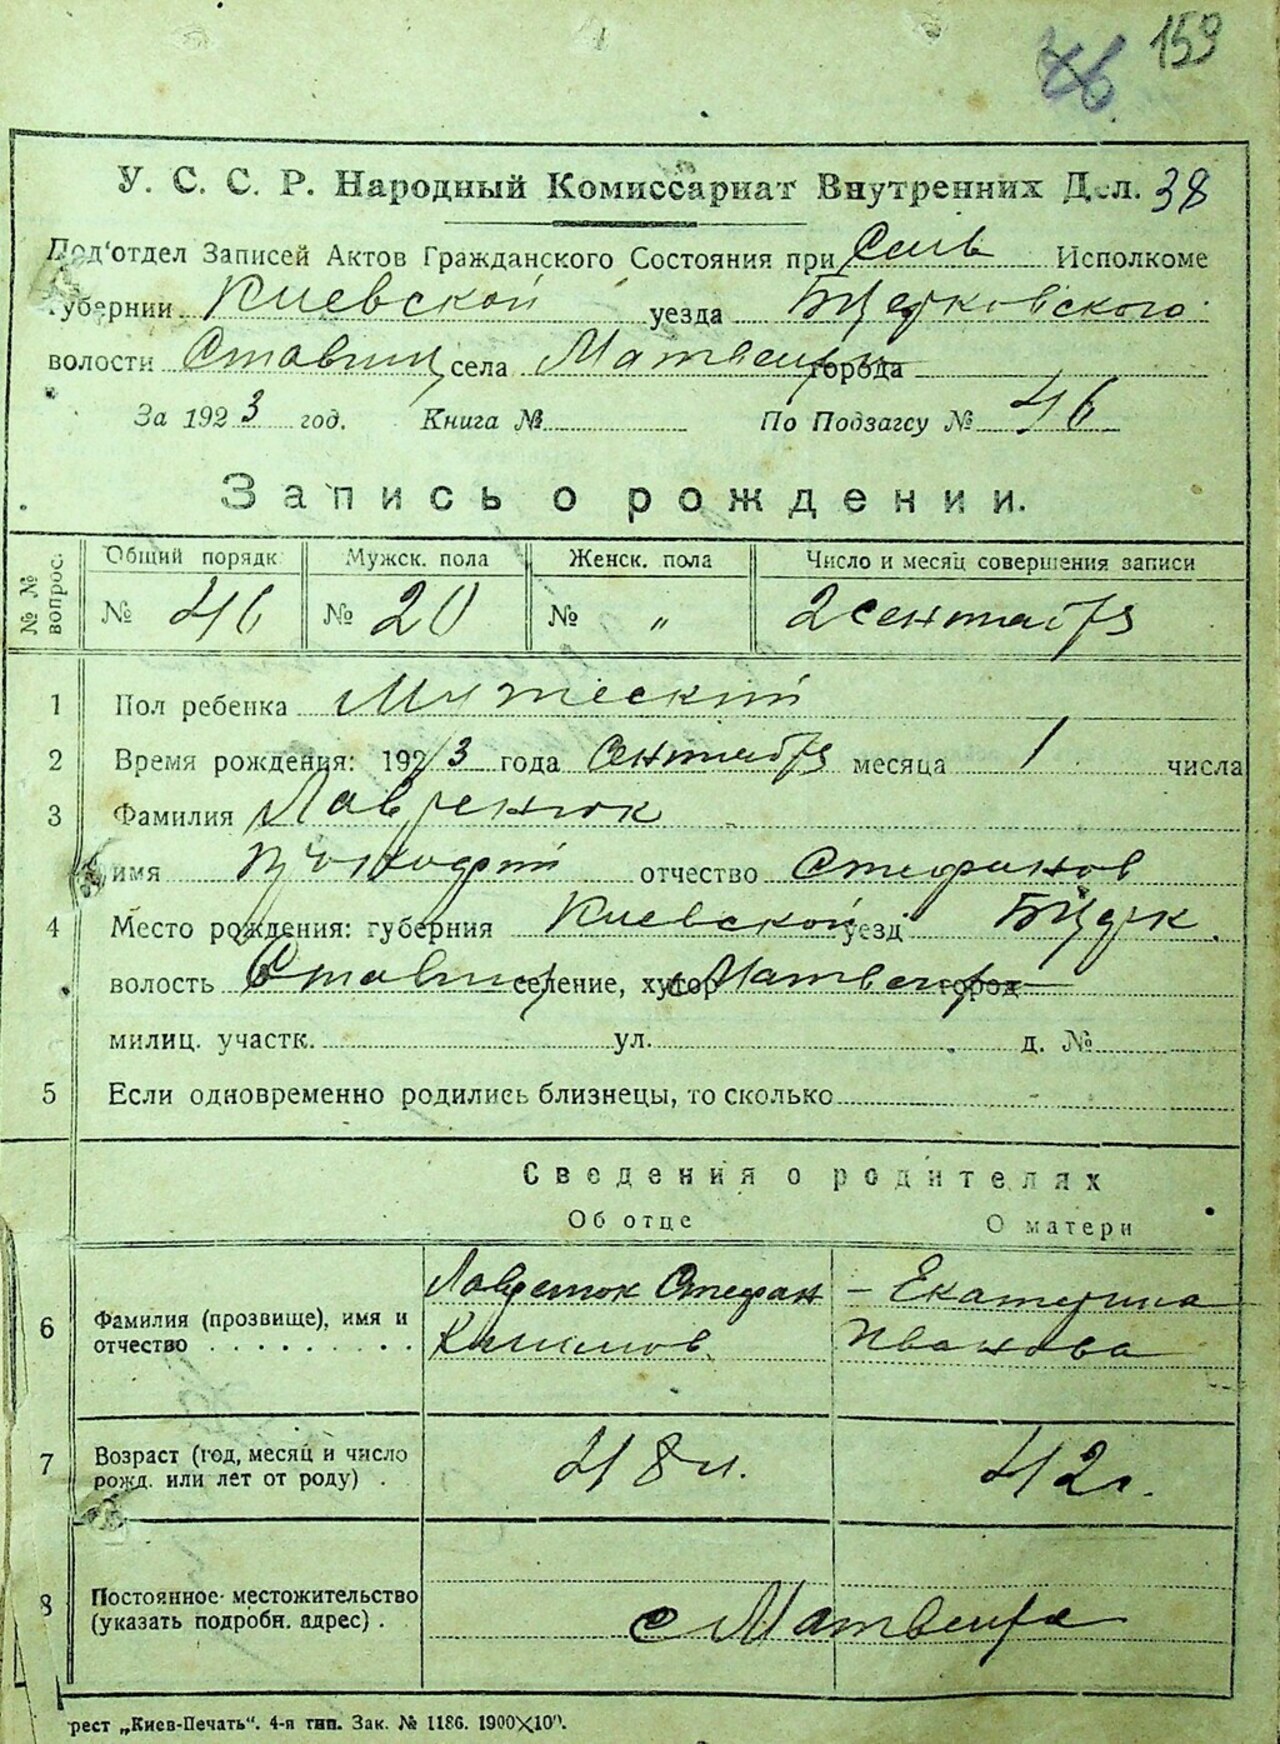 159
46
У. С. С. Р. Народный Комиссариат Внутренних Дел. 38
Под'отдел Записей Актов Гражданского Состояния при Сель Исполкоме
губернии Киевской уезда БЦерковского
волости Ставищ села Матвеих города
За 1923 год. Книга № По Подзагсу № 46
Запись о рождении.
№ № вопрос. Общий порядк. Мужск. пола Женск. пола Число и месяц совершения записи
№ 46 № 20 № „ 2 сентября
1 Пол ребенка Мужеский
2 Время рождения: 1923 года Сентября месяца 1 числа
3 Фамилия Лавренюк
имя отчество Стефанов
4 Место рождения: губерния Киевской уезд БЦерк.
волость Ставищ селение, хутор с Матвеих город
милиц. участк. ул. д. №
5 Если одновременно родились близнецы, то сколько
Сведения о родителях
Об отце О матери
6 Фамилия (прозвище), имя и Лавренюк Стефан – Екатерина
отчество . . . . . . . . . Климов Иванова
7 Возраст (год, месяц и число 48 л. 42 г.
рожд. или лет от роду) .
8 Постоянное местожительство
(указать подробн. адрес) . с Матвеиха
рест „Киев-Печать“. 4-я тип. Зак. № 1186. 1900×100.